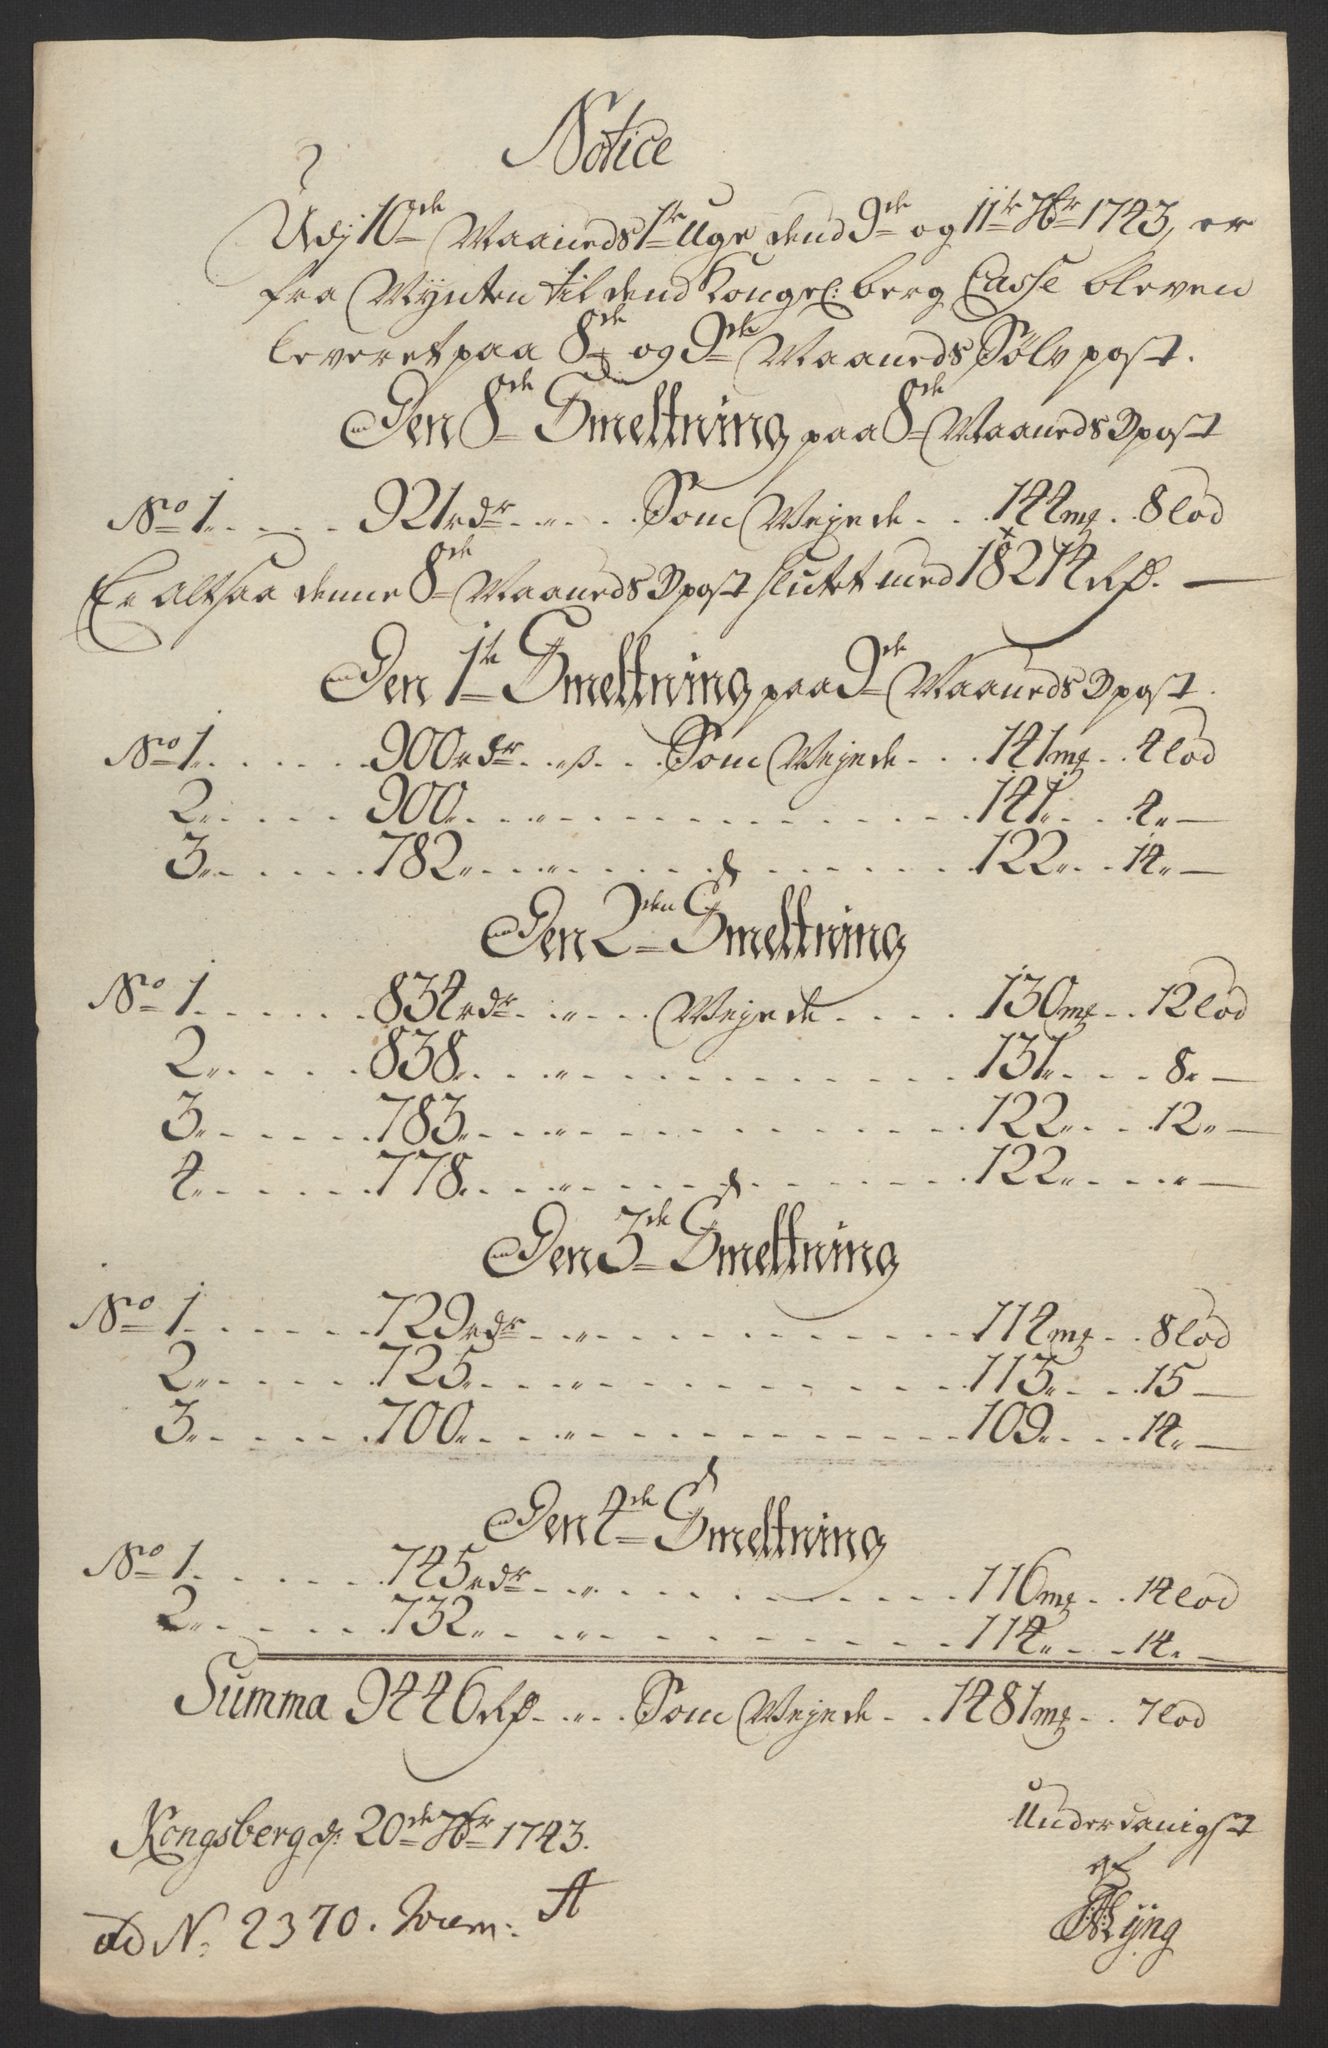 Notice
Udj 10de Maaneds 1te Uge dend 9de og 11te 7br 1743, er
fra Mynten til dend Kongel: berg Casse bleven
leveret paa 8de og 9de Maaneds Sølv post.
Den 8de Smeltning paa 8de Maaneds ☽ post
No 1. 921 rdr. „ Som Vejede 144 mg. 8 lod
Er altsaa denne 8de Maaneds ☽ post slutet med 18214 Rd. —
Den 1te Smeltning paa 9de Maaneds ☽ post.
No 1. 900 rdr. „ ß. Som Vejede 141 mg. 4 lod
2. 900. „ 141. 4. —
3. 782. „ 122. 14. —
Den 2den Smeltning
No 1. 834 rdr. „ Vejede 130 mg. 12 lod
2. 838. „ 131. 8. —
3. 783. „ 122. 12. —
4. 778. „ 122. „ —
Den 3de Smeltning
No 1. 729 rdr. „ 114 mg. 8 lod
2. 725. „ 113. 15 —
3. 700. „ 109. 14. —
Den 4de Smeltning
No 1. 745 rdr. „ 116 mg. 14 lod
2. 732. „ 114. 14. —
Summa 9446 Rd. „ Som Vejede 1481 mg. 7 lod
Kongsberg d: 20de 7br 1743.
Underdanigst
af
ad N. 2370.
A